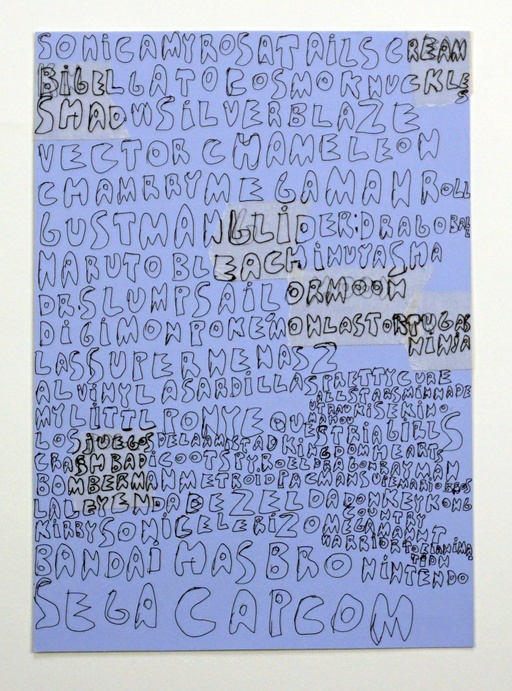 SONICAMYROSATAILSCREAM
BIGELGATOCOSMOKNUCKLES
SHADWSILVERBLAZE
VECTORCHAMELEON
CHAMRRYMEGAMANROLL
GUSTMANGLLIDER:DRAGOBAL
NARUTOBLEACHINUYASHA
DR.SLUMPSAILORMOOON
DIGIMONPOKÉMONLASTORTUGAS
NINJA
LASSUPERNENASZ
ALVINYLASARDILLAS PRETTYCURE
ALLSTARS
MYLITTLPONYEQU
ESTRIAGIRLS
LOSJUEGOSDELAAMISTADKINGDOMHEARTS
CRASHBADICOOTSPYROELDRAGONRAYMAN
BOMBERMANMETROIDPACMANSUPERMARIOBROS
LALEYENDADEZELDADONKEYKONG
COUNTRY
KIRBYSONICELERIZO
MEGAMAN
WARRIOR
BANDAIHASBRONINTENDO
SEGACAPCOM